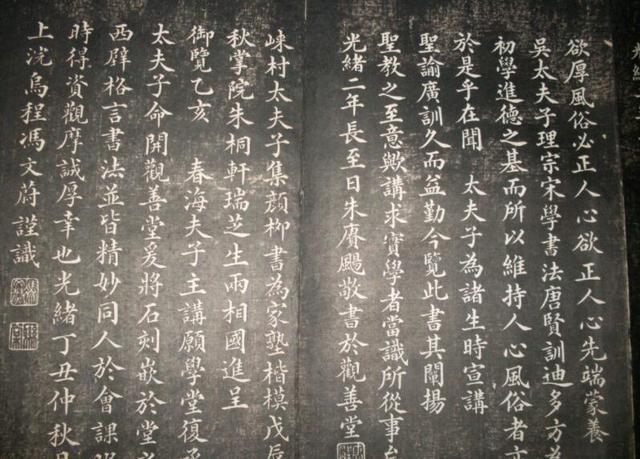 欲厚風俗必正人心欲正人心先端蒙養
吳太夫子理宗宋學書法唐賢訓迪多方為
初學進德之基而所以維持人心風俗者亦
於是乎在聞 太夫子為諸生時宣講
聖諭廣訓久而益勤今覽此書其闡揚
聖教之至意歟講求實學者當識所從事
光緒二年長至日朱賡颺敬書於觀善堂
崍村太夫子集顏柳書為家塾楷模戊辰
秋掌院朱桐軒瑞芝生兩相國進呈
御覽乙亥 春海夫子主講願學堂復承
太夫子命開觀善堂爰將石刻嵌於堂之
西辟格言書法並皆精妙同人於會課
時得資觀摩誠厚幸也光緒丁丑仲秋月
上浣烏程馮文蔚謹識